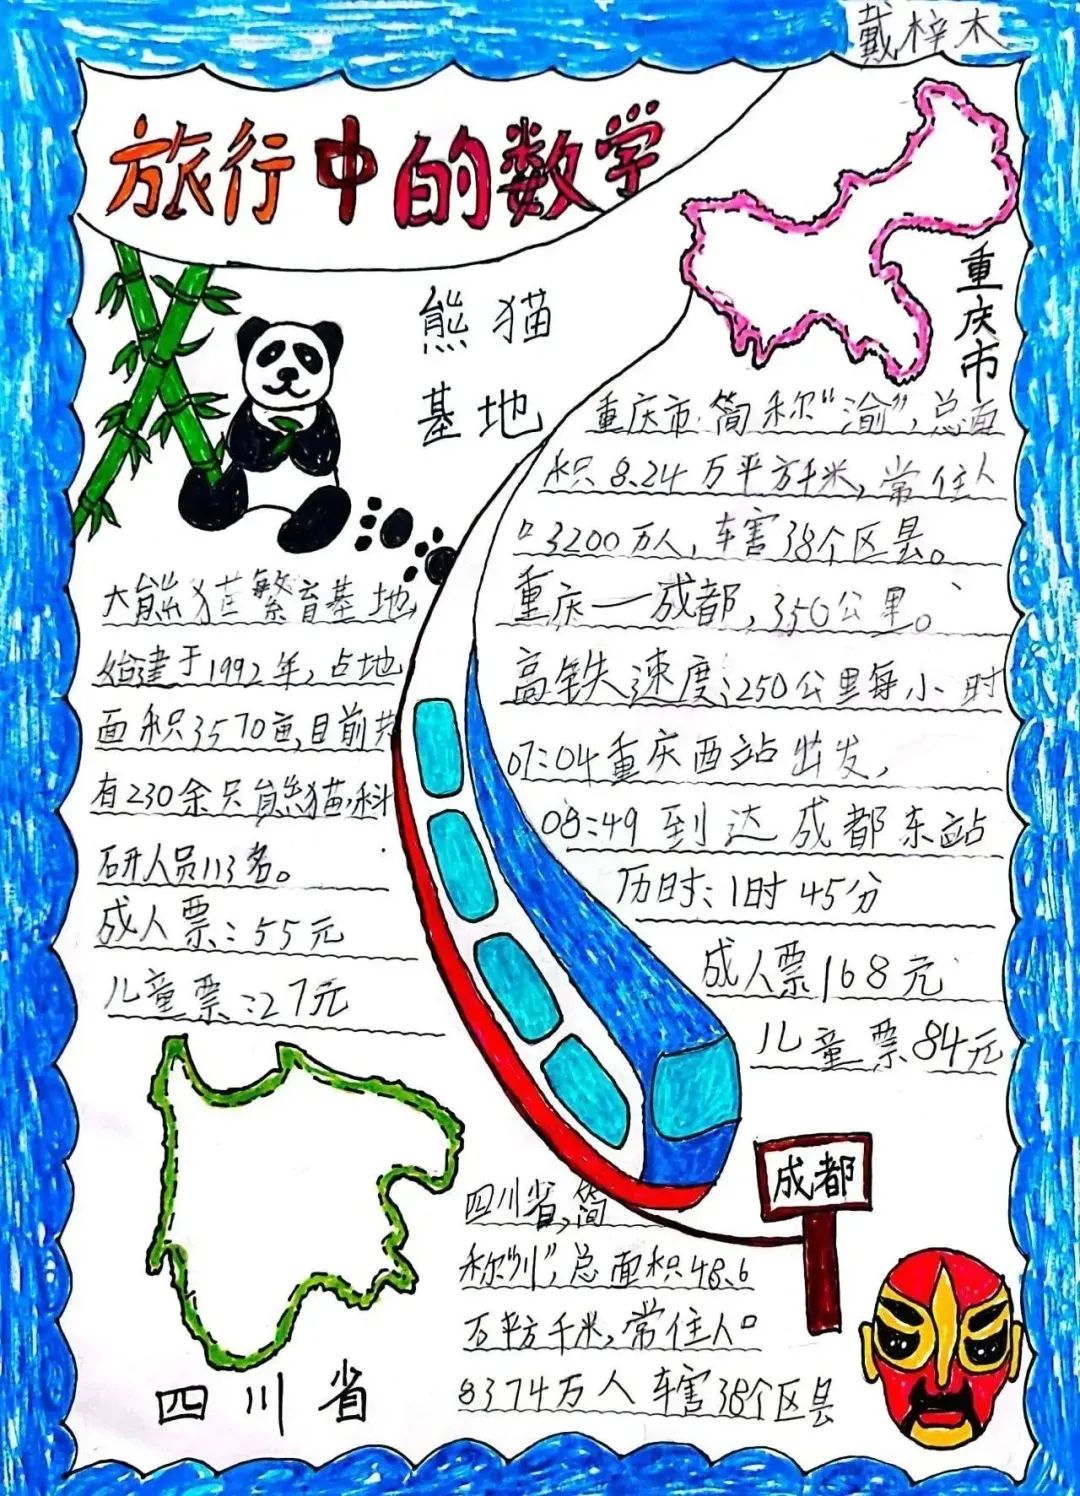 戴梓木
旅行中的数学
熊猫
基地
大熊猫繁育基地,
始建于1992年,占地
面积3570亩,目前共
有230余只熊猫,科
研人员113名。
成人票:55元
儿童票:27元
重庆市
重庆市 简称“渝”,总面
积8.24万平方千米,常住人
口3200万人,辖38个区县。
重庆——成都,350公里。
高铁速度:250公里每小时
07:04重庆西站出发,
08:49到达成都东站
历时:1时45分
成人票168元
儿童票84元
成都
四川省,简
称“川”,总面积48.6
万平方千米,常住人口
8374万人 辖38个区县
四川省